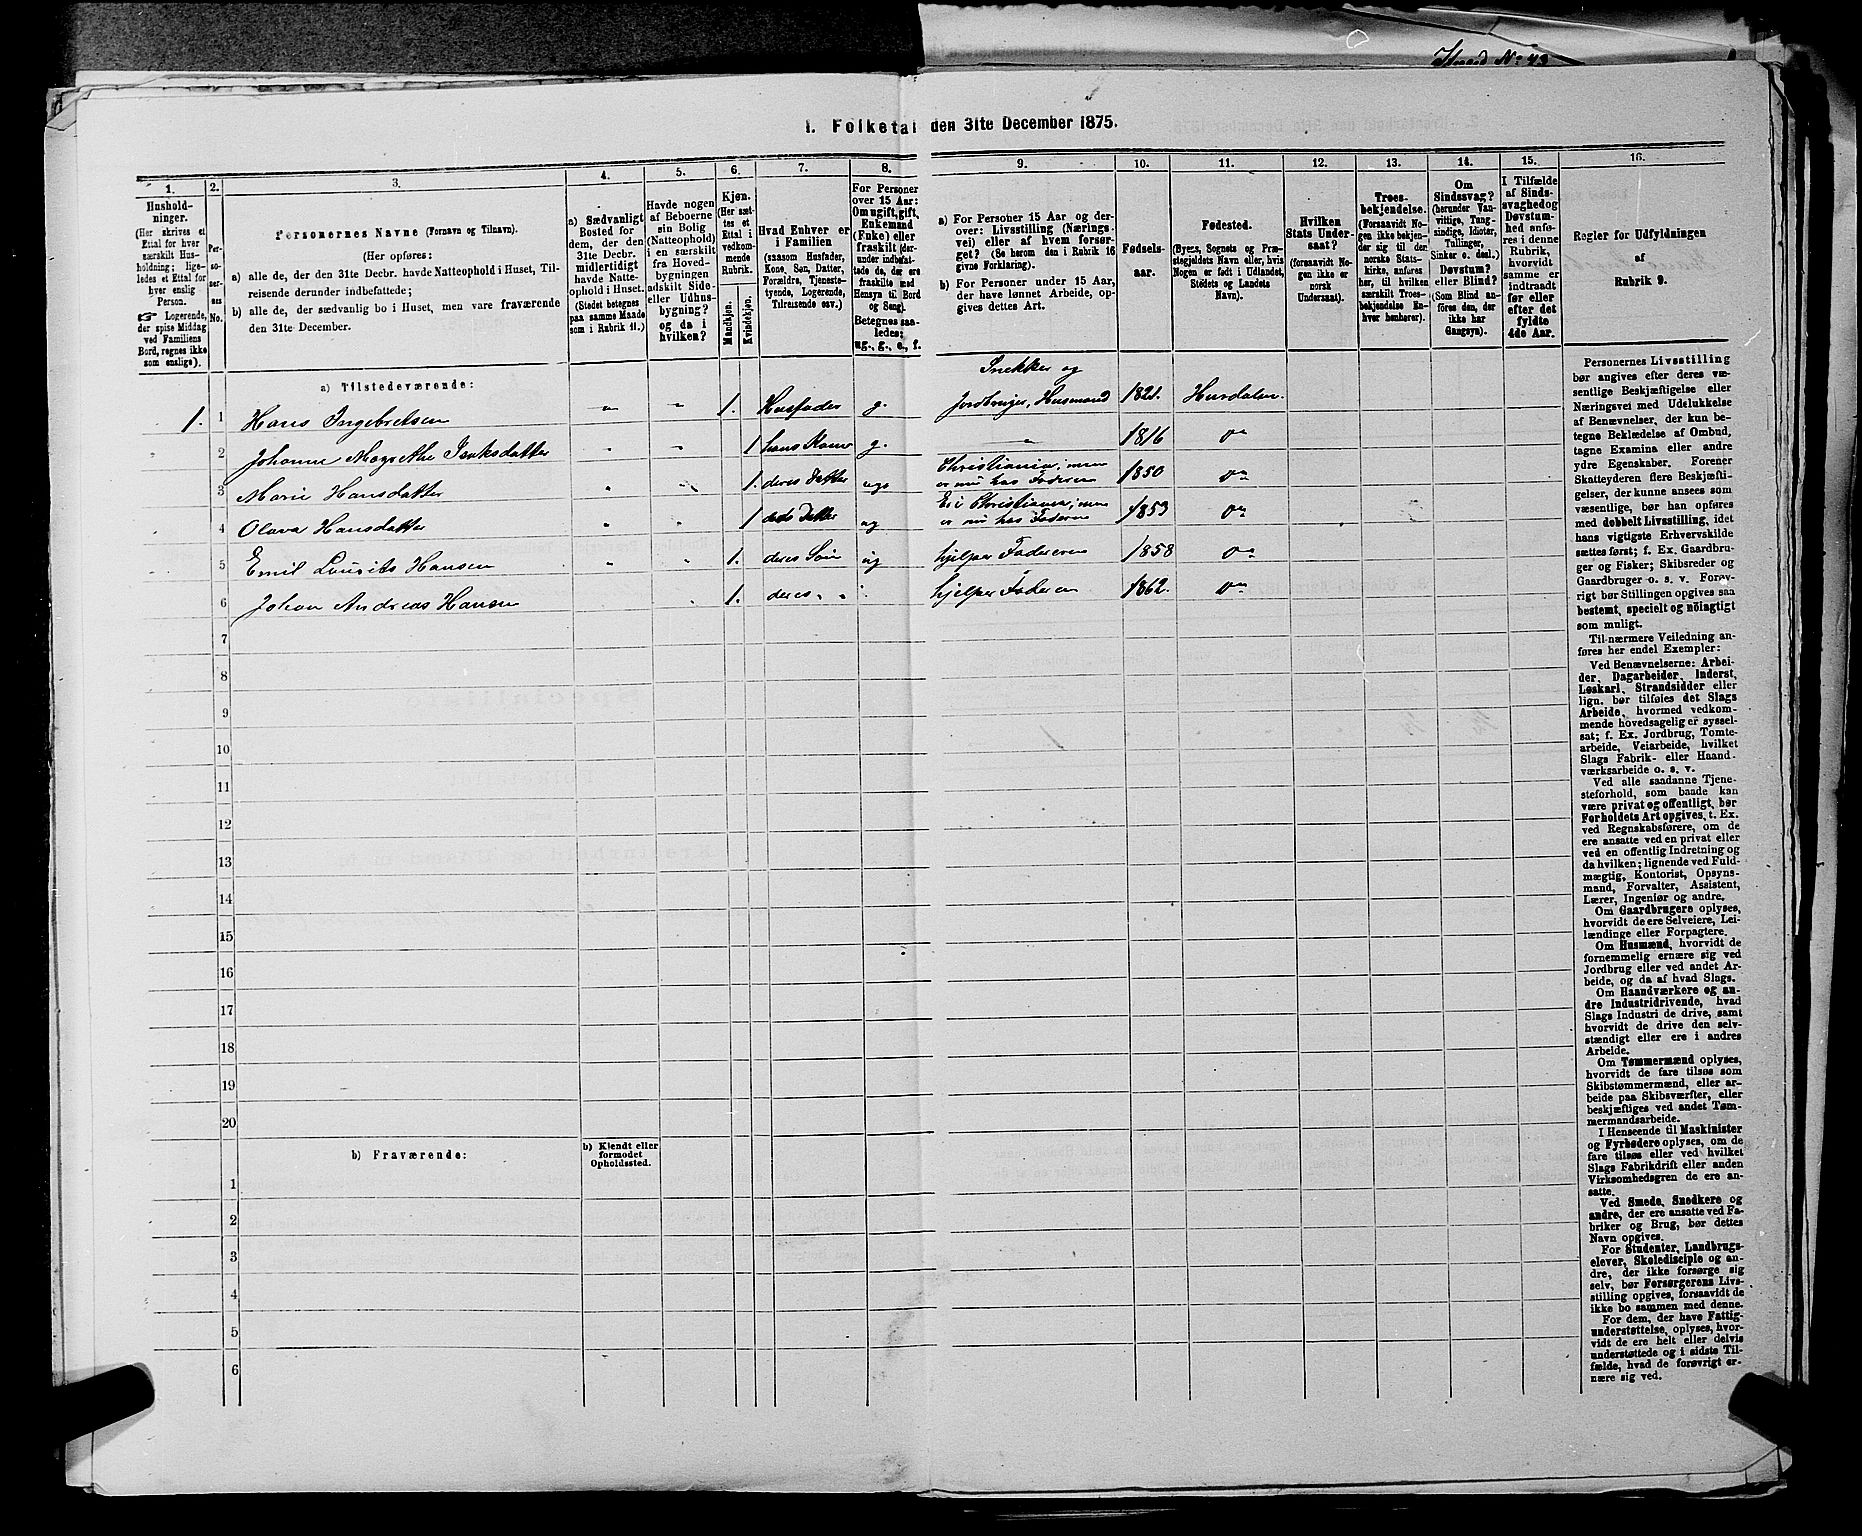 I. Folketal den 31te December 1875.
1. 2. 3. 4. 5. 6. 7. 8. 9. 10. 11. 12. 13. 14. 15. 16.
Husholdninger.
(Her skrives et
Ettal for hver
særskilt Husholdning;
ligeledes et Ettal for
hver enslig
Person.
☞ Logerende,
der spise Middag
ved Familiens
Bord, regnes ikke
som enslige).
Personernes No.
Personernes Navne (Fornavn og Tilnavn).
(Her opføres:
a) alle de, der den 31te Decbr. havde Natteophold i Huset, Tilreisende
derunder indbefattede;
b) alle de, der sædvanlig bo i Huset, men vare fraværende
den 31te December.
a) Sædvanligt
Bosted for
dem, der den
31te Decbr.
midlertidigt
havde Natteophold
i Huset.
(Stedet betegnes
paa samme Maade
som i Rubrik 11.)
Havde nogen
af Beboerne
sin Bolig
(Natteophold)
i en særskilt
fra Hovedbygningen
adskilt Side-
eller Udhusbygning?
og da i
hvilken?
Kjøn.
(Her sættes
et
Ettal i
vedkommende
Rubrik.
Mandkjøn.
Kvindekjøn.
Hvad Enhver er
i Familien
(saasom Husfader,
Kone, Søn, Datter,
Forældre, Tjenestetyende,
Logerende,
Tilreisende osv.)
For Personer
over 15 Aar:
Om ugift, gift,
Enkemand
(Enke) eller
fraskilt (derunder
indbefattede
de, der ere
fraskilte med
Hensyn til Bord
og Seng).
Betegnes saaledes:
ug., g., e., f.
a) For Personer 15 Aar og derover:
Livsstilling (Næringsvei)
eller af hvem forsørget?
(Se herom den i Rubrik 16
givne Forklaring).
b) For Personer under 15 Aar,
der have lønnet Arbeide, opgives
dettes Art.
Fødselsaar.
Fødested.
(Byens, Sognets og Præstegjeldets
Navn eller, hvis
Nogen er født i Udlandet,
Stedets og Landets
Navn).
Hvilken
Stats Undersaat?
(forsaavidt Nogen
ikke er
norsk
Undersaat).
Troesbekjendelse.
(Forsaavidt Nogen
ikke bekjender
sig til den
norske Statskirke,
anføres
her, til hvilken
særskilt Troesbekjendelse
Enhver
henhører).
Om
Sindssvag?
(herunder Vanvittige,
Tungsindige,
Idioter,
Tullinger,
Sinker o. desl.)
Døvstum?
eller Blind?
(Som Blind anføres
den, der
ikke har
Gangsyn).
I Tilfælde
af Sindssvaghed
og
Døvstumhed
anføres
i denne
Rubrik,
hvorvidt
samme er
indtraadt
før eller
efter det
fyldte
4de Aar.
Regler for Udfyldningen
af
Rubrik 9.
a) Tilstedeværende:
Snekker og
1. 1 Hans Ingebretsen „ „ 1. Husfader g. Jordbruger, Husmand 1821. Hurdalen.
2 Johanne Magrethe Isaksdatter „ „ 1 hans Kone g. „ 1816 do
Christiania; men
3 Marie Hansdatter „ „ 1. deres Datter ug. er nu hos Faderen 1850 do
Er i Christiania; men
4 Olava Hansdatter „ „ 1 deres Datter ug er nu hos Faderen 1853 do
5 Emil Lourits Hansen „ „ 1. deres Søn ug hjelper Faderen 1858 do
6 Johan Andreas Hansen „ 1. deres „ „ hjelper Faderen 1862. do
7
8
9
10
11
12
13
14
15
16
17
18
19
20
b) Fraværende:
b) Kjendt eller
formodet
Opholdssted.
1
2
3
4
5
6
Personernes Livsstilling
bør angives efter deres væsentlige
Beskjæftigelse eller
Næringsvei med Udelukkelse
af Benævnelser, der kun betegne
Beklædelse af Ombud,
tagne Examina eller andre
ydre Egenskaber. Forener
Skatteyderen flere Beskjæftigelser,
der kunne ansees som
væsentlige, bør han opføres
med dobbelt Livsstilling, idet
hans vigtigste Erhvervskilde
sættes først; f. Ex. Gaardbruger
og Fisker; Skibsreder og
Gaardbruger o. s. v. Forøvrigt
bør Stillingen opgives saa
bestemt, specielt og nøiagtigt
som muligt.
Til nærmere Veiledning anføres
her endel Exempler:
Ved Benævnelserne: Arbeider,
Dagarbeider, Inderst,
Løskarl, Strandsidder eller
lign. bør tilføies det Slags
Arbeide, hvormed vedkommende
hovedsagelig er sysselsat;
f. Ex. Jordbrug, Tomtearbeide,
Veiarbeide, hvilket
Slags Fabrik- eller Haandværksarbeide
o. s. v.
Ved alle saadanne Tjenesteforhold,
som baade kan
være privat og offentligt, bør
Forholdets Art opgives, t. Ex.
ved Regnskabsførere, om de
ere ansatte ved en privat eller
ved en offentlig Indretning og
da hvilken; lignende ved Fuldmægtig,
Kontorist, Opsynsmand,
Forvalter, Assistent,
Lærer, Ingeniør og andre.
Om Gaardbrugere oplyses,
hvorvidt de ere Selveiere, Leilændinge
eller Forpagtere.
Om Husmænd, hvorvidt de
fornemmelig ernære sig ved
Jordbrug eller ved andet Arbeide,
og da af hvad Slags.
Om Haandværkere og andre
Industridrivende, hvad
Slags Industri de drive, samt
hvorvidt de drive den selvstændigt
eller ere i andres
Arbeide.
Om Tømmermænd oplyses,
hvorvidt de fare tilsøs som
Skibstømmermænd, eller arbeide
paa Skibsværfter, eller
beskjæftiges ved andet Tømmermandsarbeide.
I Henseende til Maskinister
og Fyrbødere oplyses, om de
fare tilsøs eller ved hvilket
Slags Fabrikdrift eller anden
Virksomhedsgren de ere ansatte.
Ved Smede, Snedkere og
andre, der ere ansatte ved Fabriker
og Brug, bør dettes
Navn opgives.
For Studenter, Landbrugselever,
Skoledisciple og andre,
der ikke forsørge sig
selv, bør Forsørgerens Livsstilling
opgives, forsaavidt de
ikke bo sammen med denne.
For dem, der have Fattigunderstøttelse,
oplyses, hvorvidt
de ere helt eller delvis
understøttede og i sidste Tilfælde,
hvad de forøvrigt ernære
sig ved.